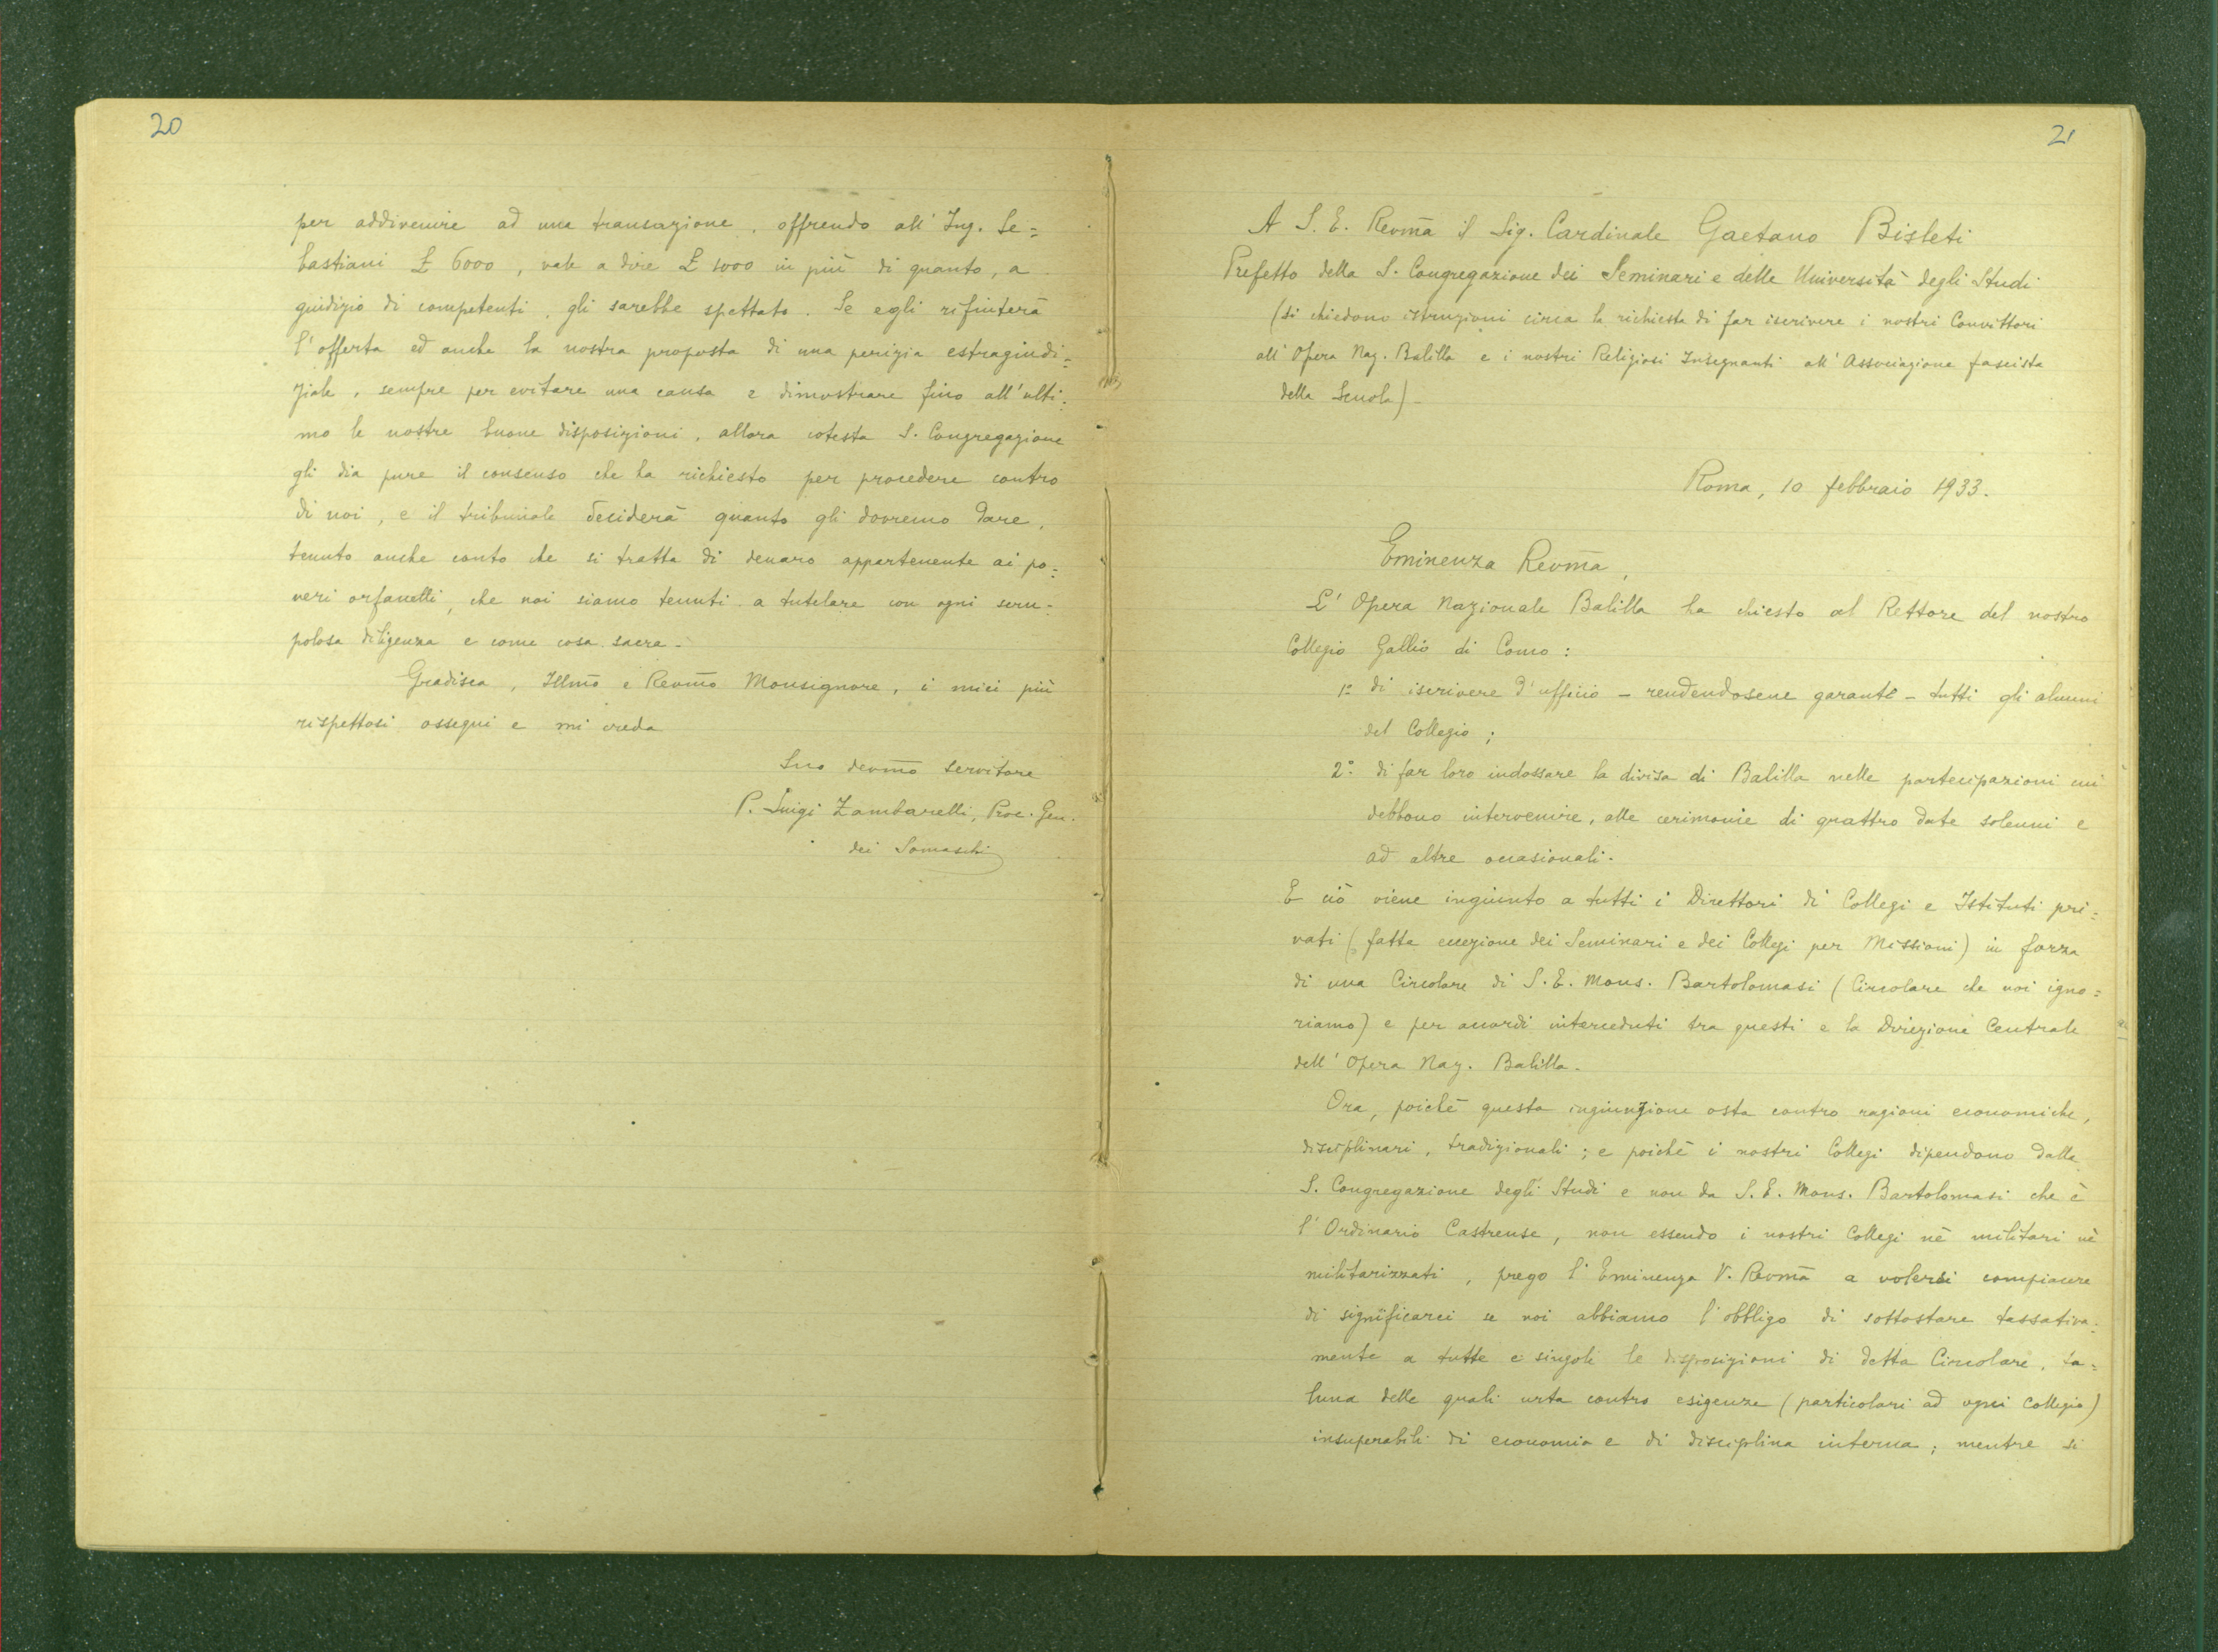 20
per addivenire ad una transazione, offrendo all'Ing. Se=
bastiani £ 6000, vale a dire £ 1000 in più di quanto, a
giudizio di competenti, gli sarebbe spettato. Se egli rifiuterà
l'offerta ed anche la nostra proposta di una perizia estragiudi=
ziale, sempre per evitare una causa e dimostrare fino all'ulti=
mo le nostre buone disposizioni, allora cotesta S. Congregazione
gli dia pure il consenso che ha richiesto per procedere contro
di noi, e il tribunale deciderà quanto gli dovremo dare,
tenuto anche conto che si tratta di denaro appartenente ai po=
veri orfanelli, che noi siamo tenuti a tutelare con ogni scru=
polosa diligenza e come cosa sacra.
Gradisca, Illmo e Revmo Monsignore, i miei più
rispettosi ossequi e mi creda
Suo devmo servitore
P. Luigi Zambarelli, Proc. Gen.
dei Somaschi
21
A S. E. Revma il Sig. Cardinale Gaetano Bisleti
Prefetto della S. Congregazione dei Seminari e delle Università degli Studi
(si chiedono istruzioni circa la richiesta di far iscrivere i nostri Convittori
all'Opera Naz. Balilla e i nostri Religiosi Insegnanti all'Associazione fascista
della Scuola)-
Roma, 10 febbraio 1933.
Eminenza Revma,
L'Opera Nazionale Balilla ha chiesto al Rettore del nostro
Collegio Gallio di Como:
1º di iscrivere d'ufficio - rendendosene garante - tutti gli alunni
del Collegio;
2º di far loro indossare la divisa di Balilla nelle partecipazioni cui
debbono intervenire, alle cerimonie di quattro date solenni e
ad altre occasionali.
E ciò viene ingiunto a tutti i Direttori di Collegi e Istituti pri=
vati (fatta eccezione dei Seminari e dei Collegi per Missioni) in forza
di una Circolare di S. E. Mons. Bartolomasi (Circolare che noi igno=
riamo) e per accordi interceduti tra questi e la Direzione Centrale
dell'Opera Naz. Balilla.
Ora, poichè questa ingiunzione osta contro ragioni economiche,
disciplinari, tradizionali; e poichè i nostri Collegi dipendono dalla
S. Congregazione degli Studi e non da S. E. Mons. Bartolomasi che è
l'Ordinario Castrense, non essendo i nostri Collegi nè militari nè
militarizzati, prego l'Eminenza V. Revma a volersi compiacere
di significarci se noi abbiamo l'obbligo di sottostare tassativa=
mente a tutte e singole le disposizioni di detta Circolare, ta=
luna delle quali urta contro esigenze (particolari ad ogni Collegio)
insuperabili di economia e di disciplina interna; mentre si